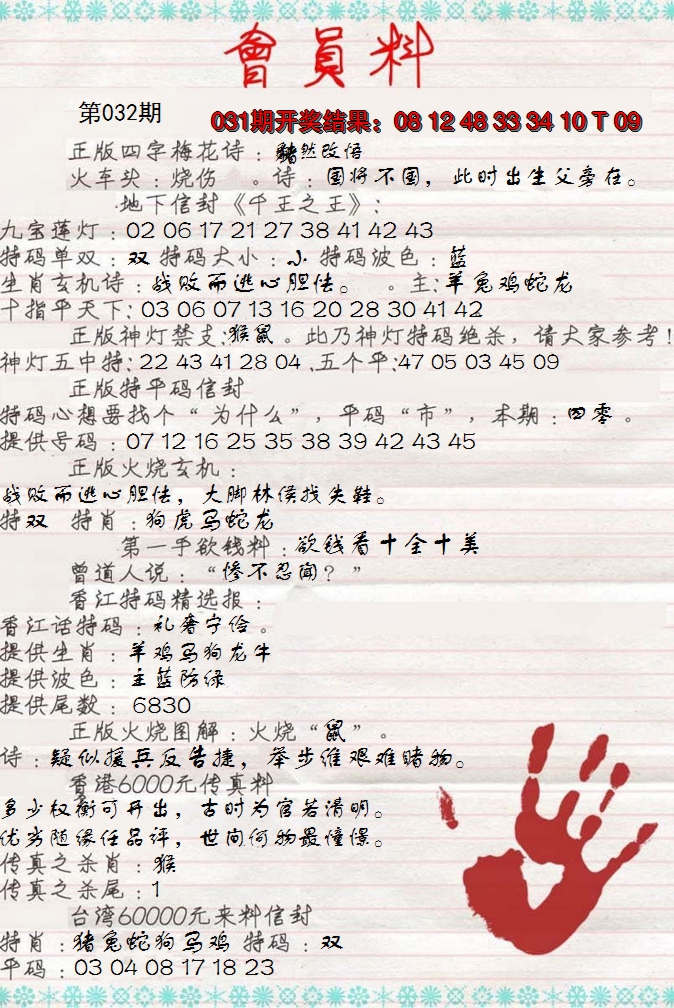 會員料
第032期
031期开奖结果：08 12 48 33 34 10 T 09
正版四字梅花诗：黯然改悟
火车头：烧伤 。诗：国将不国，此时出生父旁在。
地下信封《千王之王》：
九宝莲灯：02 06 17 21 27 38 41 42 43
特码单双：双 特码大小：小 特码波色：蓝
生肖玄机诗：战败而逃心胆怯。 。主：羊兔鸡蛇龙
十指平天下：03 06 07 13 16 20 28 30 41 42
正版神灯禁支：猴鼠。此乃神灯特码绝杀，请大家参考！
神灯五中特：22 43 41 28 04 .五个平：47 05 03 45 09
正版特平码信封
特码心想要找个“为什么”，平码“市”，本期：四零。
提供号码：07 12 16 25 35 38 39 42 43 45
正版火烧玄机：
战败而逃心胆怯，大脚林侯找失鞋。
特双 特肖：狗虎马蛇龙
第一手欲钱料：欲钱看十全十美
曾道人说：“惨不忍闻？”
香江特码精选报：
香江话特码：礼奢宁俭。
提供生肖：羊鸡马狗龙牛
提供波色：主蓝防绿
提供尾数：6830
正版火烧图解：火烧“鼠”。
诗：疑似援兵反告捷，举步维艰难睹物。
香港6000元传真料
多少权衡可开出，古时为官若清明。
优劣随缘任品评，世间何物最憧憬。
传真之杀肖：猴
传真之杀尾：1
台湾60000元来料信封
特肖：猪兔蛇狗马鸡 特码：双
平码：03 04 08 17 18 23